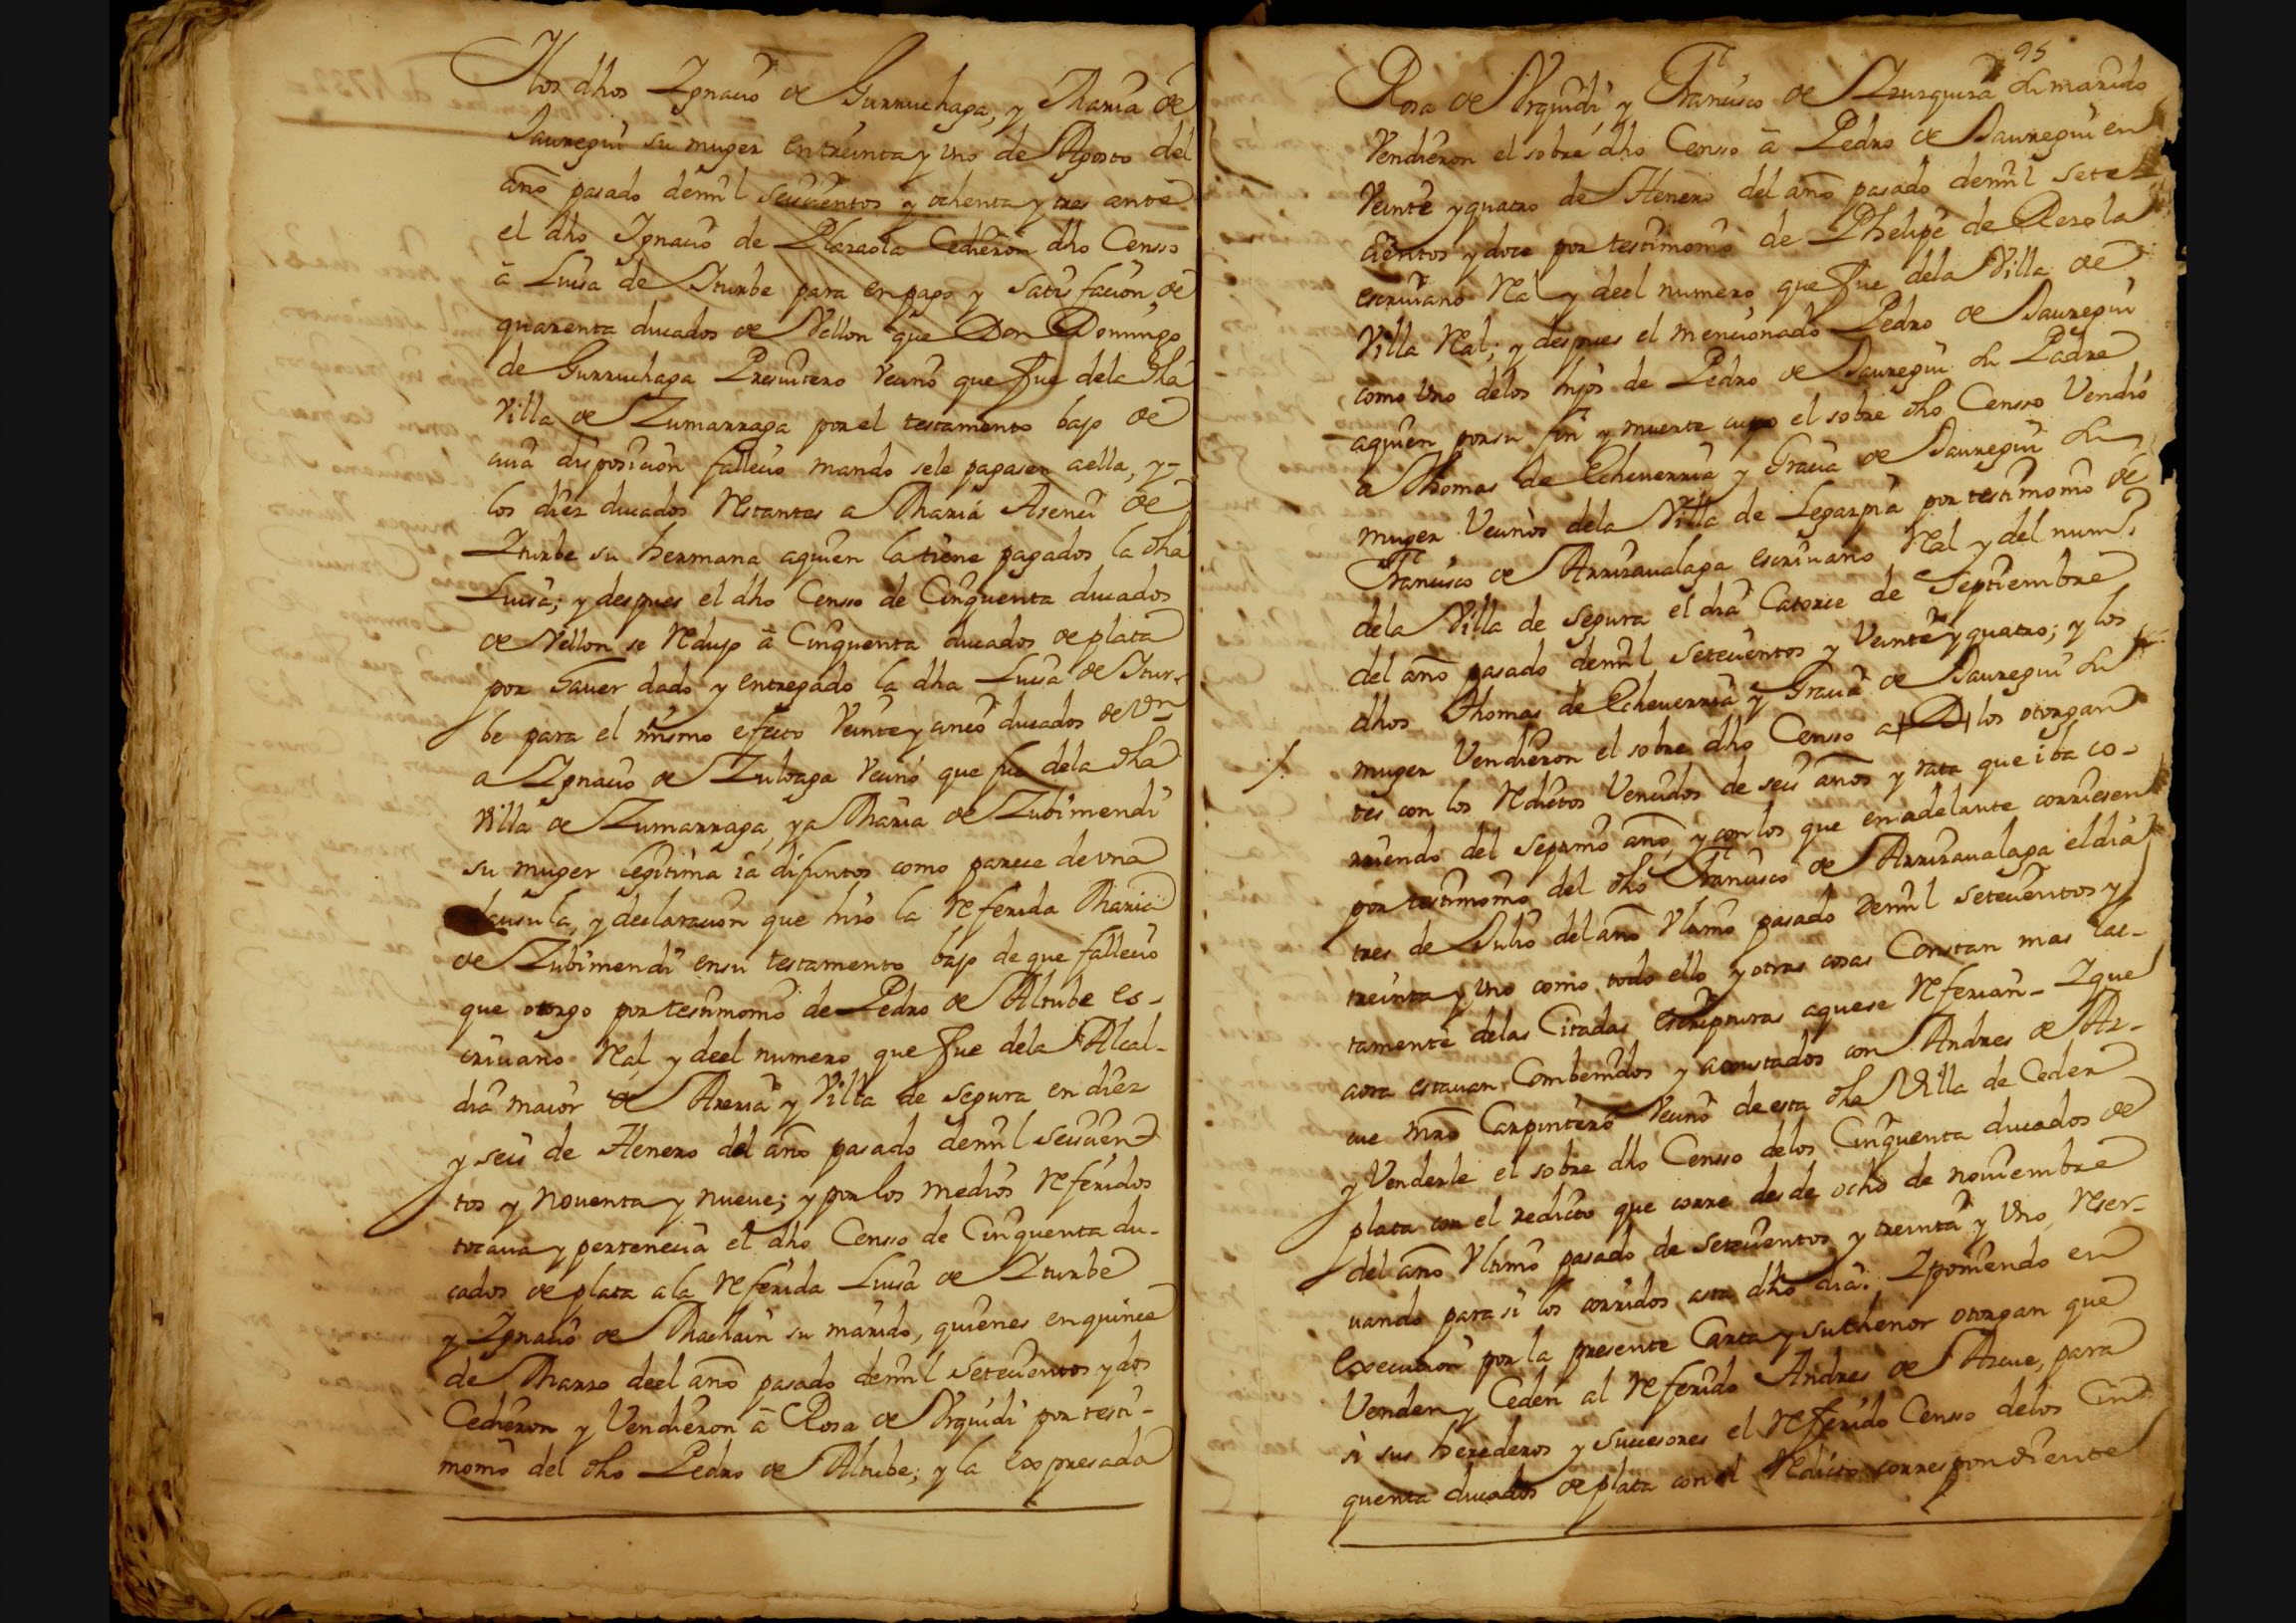 Y los dhos Ygnacio de Gurruchaga, y Maria de
Jauregui su muger en treinta y uno de Agosto del
año pasado de mil seiscientos y ochenta y tres ante
el dho Ygnacio de Plazaola Cedieron dho Censso
â Luisa de Yturbe para en pago y satisfacion de
quarenta ducados de Vellon que Don Domingo
de Gurruchaga Presuitero vecino que fue de la dha
Villa de Zumarraga por el testamento bajo de
cuia disposicion fallecio mando se le pagasen a ella, y
los diez ducados Restantes a Maria Asenci de
Yturbe su hermana a quien la tiene pagados la dha
Luisa; y despues el dho Censso de Cinquenta ducados
de Vellon se Redujo â Cinquenta ducados de plata
por haver dado y entregado la dha Luisa de Ytur-
be para el mismo efecto Veinte y cinco ducados de Vn
a Ygnacio de Zuloaga vecino que fue de la dha
Villa de Zumarraga, y a Maria de Zubimendi
su muger legitima ia difuntos como parece de una
clausula, y declaracion que hizo la Referida Maria
de Zubimendi en su testamento bajo de que fallecio
que otorgo por testimonio de Pedro de Altube es-
crivano Real y de el numero que fue de la Alcal-
dia maior de Areria y Villa de Segura en diez
y seis de Henero del año pasado de mil seiscien-
tos y noventa y nueve; y por los medios Referidos
tocava y pertenecia el dho Censso de Cinquenta du-
cados de plata a la Referida Luisa de Yturbe
y Ygnacio de Machain su marido, quienes en quince
de Marzo de el año pasado de mil setecientos y dos
Cedieron y Vendieron â Rosa de Vrquidi por testi-
monio del dho Pedro de Altube; y la expresada
95
Rosa de Vrquidi, y Francisco de Yzurquiza su marido
Vendieron el sobre dho Censso â Pedro de Jauregui en
Veinte y quatro de Henero del año pasado de mil sete-
cientos y doce por testimonio de Phelipe de Rezola
escrivano Real y de el numero que fue de la Villa de
Villa Real; y despues el mencionado Pedro de Jauregui
como uno de los hijos de Pedro de Jauregui su Padre
a quien por su fin y muerte cupo el sobre dho Censso Vendio
a Thomas de Echeverria y Gracia de Jauregui su
muger Vecinos de la Villa de Legazpia por testimonio de
Francisco de Arrizavalaga escrivano Real y del numo
de la Villa de Segura el dia Catorce de Septiembre
del año pasado de mil setecientos y Veinte y quatro; y los
dhos Thomas de Echeverria y Gracia de Jauregui su
muger Vendieron el sobre dho Censso a los otorgan-
tes con los Reditos Vencidos de seis años y rata que iba co-
rriendo del septimo año, y con los que en adelante corriesen
por testimonio del dho Francisco de Arrizavalaga el dia
tres de Julio del año Vltimo pasado de mil setecientos y
treinta y uno como todo ello y otras cosas Constan mas lar-
tamente de las Citadas escripturas a que se Referian - Y que
aora estavan Combenidos y acoustados con Andres de Ar-
cue mro Carpintero Vecino de esta dha Villa de Ceder
y Venderle el sobre dho Censso de los Cinquenta ducados de
plata con el redicto que corre desde ocho de noviembre
del año Vltimo pasado de setecientos y treinta y Vno, Reser-
vando para si los corridos asta dho dia: Y poniendo en
Execucion por la presente Carta y su thenor otorgan que
Venden y Ceden al Referido Andres de Arcue, para
si sus herederos y sucesores el Referido Censso de los Cin-
quenta ducados de plata con el Redicto correspondiente